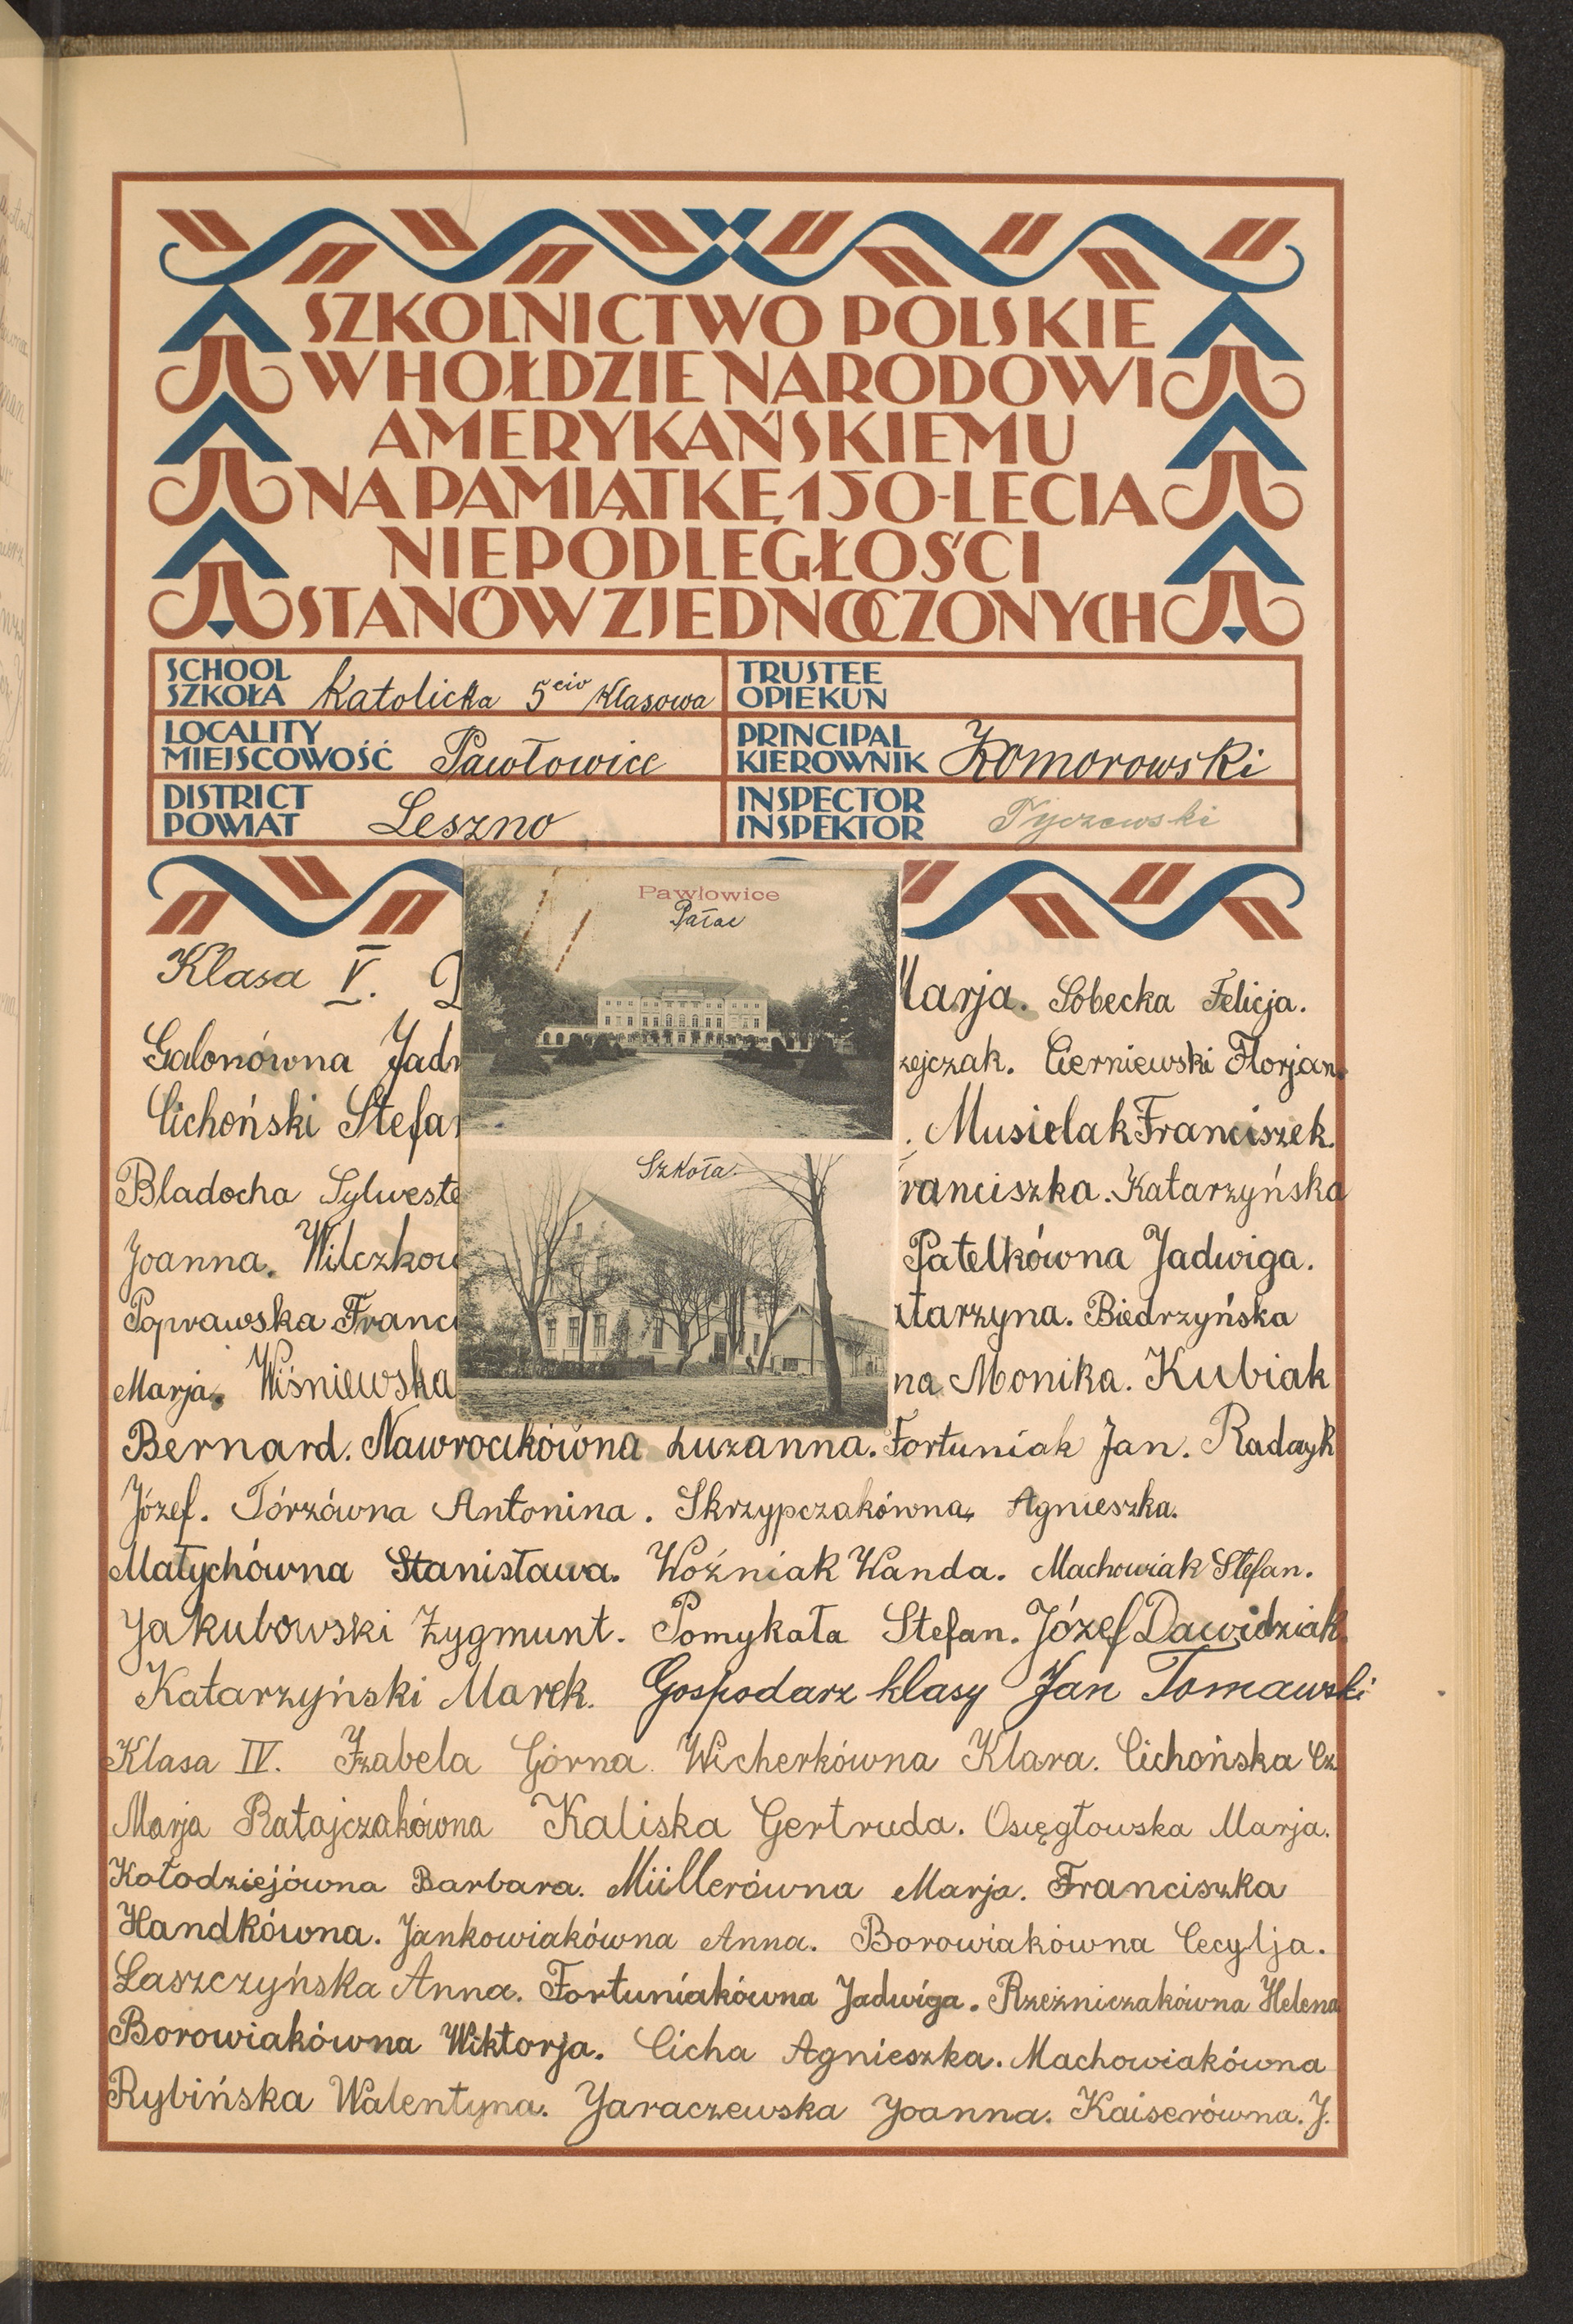 SZKOLNICTWO POLSKIE
W HOŁDZIE NARODOWI
AMERYKAŃSKIEMU
NA PAMIĄTKĘ 150-LECIA
NIEPODLEGŁOŚCI
STANÓW ZJEDNOCZONYCH
SCHOOL
SZKOŁA Katolicka 5cio Klasowa
TRUSTEE
OPIEKUN
LOCALITY
MIEJSCOWOŚĆ Pawłowice
PRINCIPAL
KIEROWNIK Komorowski
DISTRICT
POWIAT Leszno
INSPECTOR
INSPEKTOR Tyczewski
Pawłowice
Pałac
Szkoła
Klasa V. Marja. Sobecka Felicja.
Galonówna Jadw zejczak. Cierniewski Florjan.
Cichoński Stefan . Musielak Franciszek.
Bladocha Sylweste ranciszka. Katarzyńska
Joanna. Wilczkow Patelkówna Jadwiga.
Poprawska Franci atarzyna. Biedrzyńska
Marja. Wiśniewska na Monika. Kubiak
Bernard. Nawrocikówna Zuzanna. Fortuniak Jan. Radczyk
Józef. Tórzówna Antonina. Skrzypczakówna Agnieszka.
Małychówna Stanisława. Woźniak Wanda. Machowiak Stefan.
Jakubowski Zygmunt. Pomykała Stefan. Józef Dawidziak.
Katarzyński Marek. Gospodarz klasy Jan Tomawski
Klasa IV. Izabela Górna. Wicherkówna Klara. Cichońska Cz
Marja Ratajczakówna Kaliska Gertruda. Osięgłowska Marja.
Kołodziejówna Barbara. Müllerówna Marja. Franciszka
Handkówna. Jankowiakówna Anna. Borowiakówna Cecylja.
Laszczyńska Anna. Fortuniakówna Jadwiga. Rzeźniczakówna Helena
Borowiakówna Wiktorja. Cicha Agnieszka. Machowiakówna
Rybińska Walentyna. Jaraczewska Joanna. Kaiserówna. J.